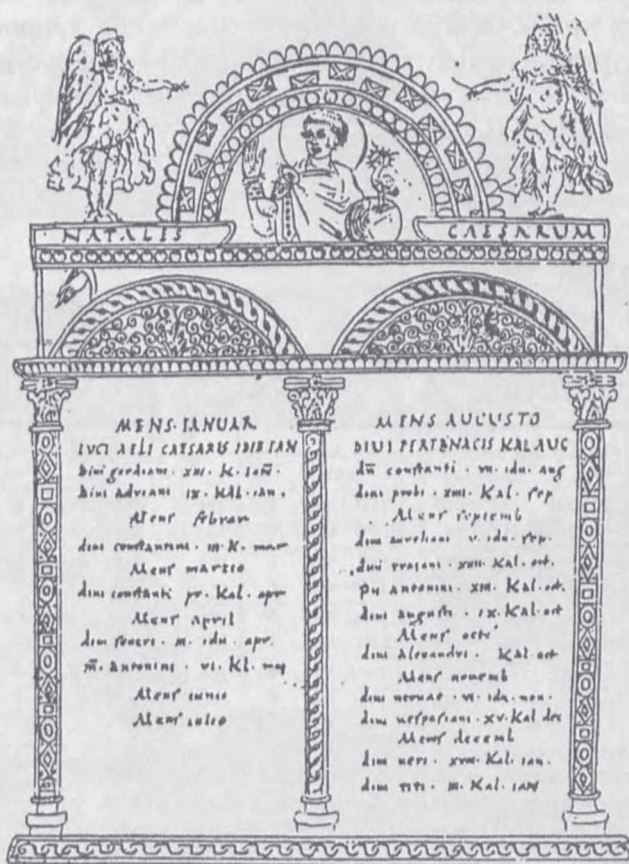 NATALES CAESARUM
MENS·IANUAR
LUCI AELI CAESARIS IDIB IAN
Diui gordiani · xiii · K · ian̄ ·
Diui adriani ix · Kal · ian ·
Mens februar
diui constantini · iii · K · mar
Mens martio
diui constanti pr · Kal · apr
Mens april
diui seueri · iii · idu · apr ·
m̄ · antonini · vi · Kl · mai
Mens iunio
Mens iulio
MENS AUGUSTO
DIUI PERTENACIS KAL AUG
dn̄ constanti · vii · idu · aug
diui probi · xiiii · Kal · sep
Mens septemb
diui aureliani v · idu · sep ·
diui traiani · xiiii · Kal · oct ·
pii antonini · xiii · Kal · oct ·
diui augusti · ix · Kal · oct
Mens octo
diui alexandri · Kal oct
Mens nouemb
diui neruae · vi · idu · nou ·
diui uespasiani · xv · Kal dec
Mens decemb
diui ueri · xviii · Kal · ian ·
diui titi · iii · Kal · ian